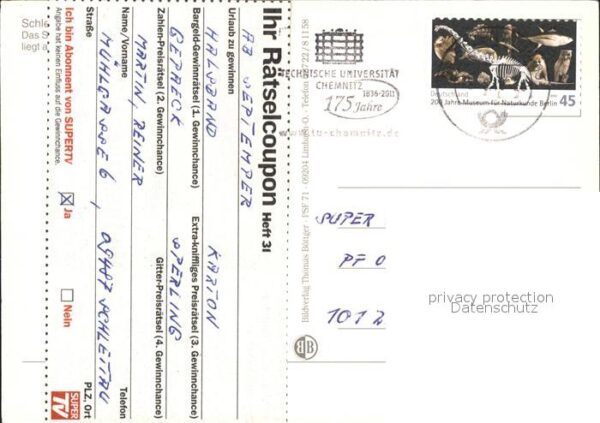 Schle
Das S
liegt a
Ihr Rätselcoupon Heft 31
Urlaub zu gewinnen
AB SEPTEMBER
Bargeld-Gewinnrätsel (1. Gewinnchance)
Extra-kniffliges Preisrätsel (3. Gewinnchance)
HALSBAND
KARTON
Zahlen-Preisrätsel (2. Gewinnchance)
Gitter-Preisrätsel (4. Gewinnchance)
GEPAECK
SPERLING
Name/Vorname
Telefon
MARTIN, REINER
Straße
PLZ, Ort
6, 09487 SCHLETTAU
Ich bin Abonnent von SUPERTV
Angabe hat keinen Einfluss auf die Gewinnchance.
Ja
Nein
SUPER TV
Bildverlag Thomas Böttger · PSF 71 · 09201 Limbach-O. · Telefon 03722/811 58
TECHNISCHE UNIVERSITÄT
CHEMNITZ
1836-2011
175 Jahre
www.tu-chemnitz.de
Deutschland
200 Jahre Museum für Naturkunde Berlin 45
SUPER
PF 0
privacy protection
Datenschutz